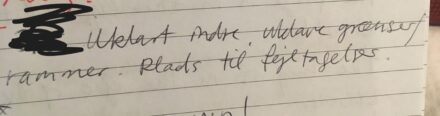 Uklart indre, uklare grænser/
rammer. Plads til fejltagelser.